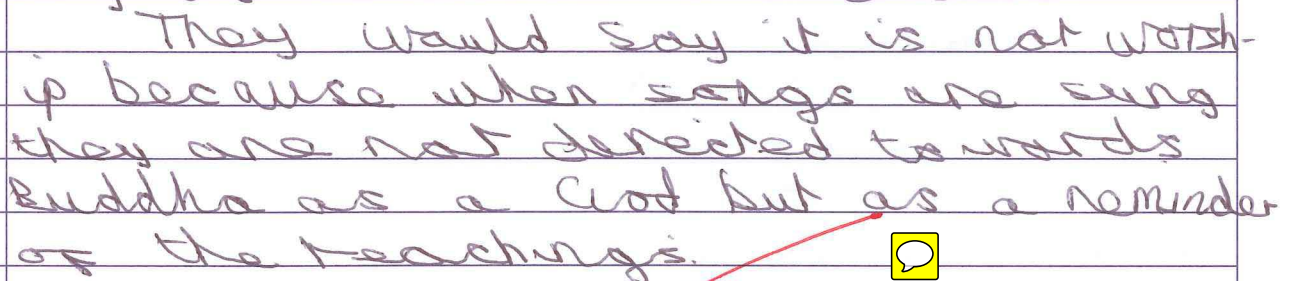 They would say it is not worsh-
ip because when songs are sung
they are not derected towards
Buddha as a God but as a reminder
of the teachings.